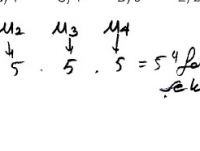 M2 M3 M4
5 . 5 . 5 = 5⁴